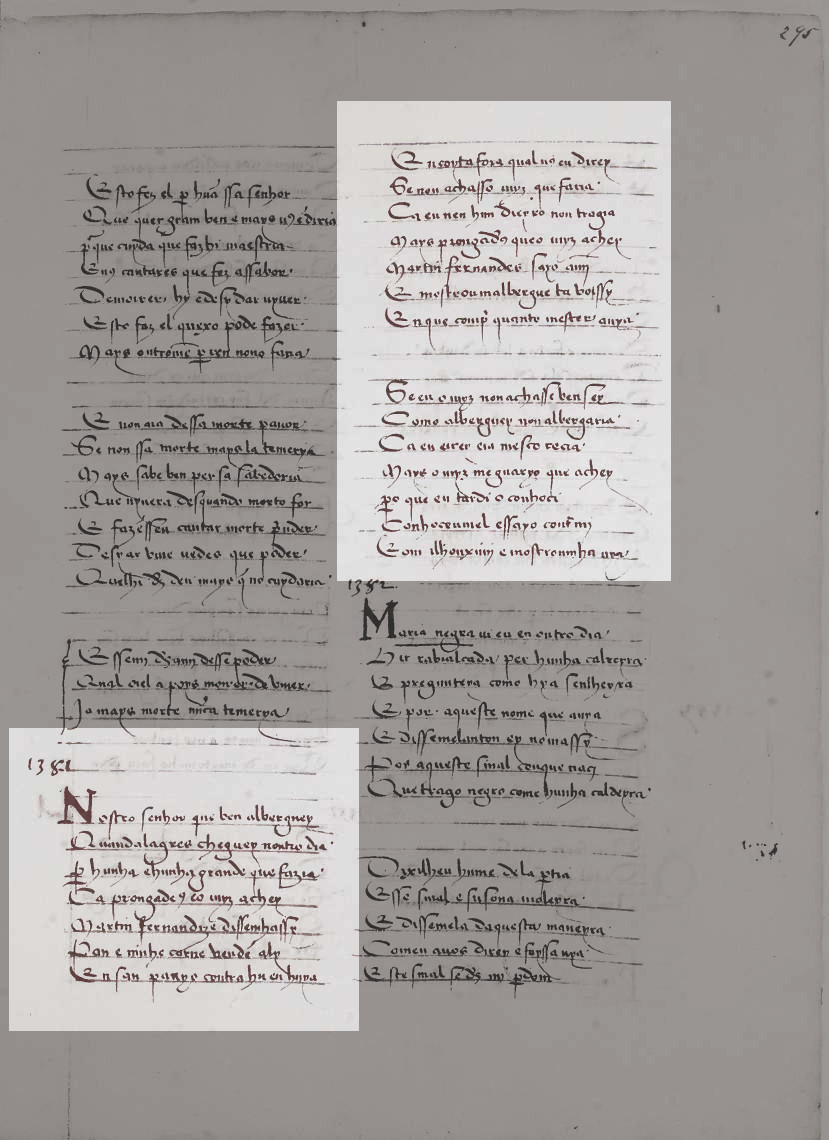 295
Esto fez el por hũa ssa senhor
Que quer gram ben e mays
que cuyda que faz hi maestria
E nos cantares que fez assabor
De morrer hy e desy dar uyuer
Esto faz el quexo pode fazer
Mays outrome per ren nono faria
E non aia dessa morte pauor
Se non ssa morte mays la temerya
Mays sabe ben per sa sabedoria
Que uyuera desquando morto for
E fazessen cantar morte prender
Desy ar uiue uedes que poder
Quelhi ds̃ deu mays q̃ nõ cuydaria
E ssemi ds̃ ami desse poder
Qual oiel a poys morrer de uiuer
Ja mays morte nũca temerya
1381
Nostro senhor que ben alberguey
Quandalagres cheguey noutro dia
Per hunha chunha grande que fazia
Ca prougade eo uyz achey
Martin Fernandiz e dissemhassy
Pan e uinhe carne uendẽ aly
En san payo contra hu en hyya
En coyta fora qual uꝯ eu direy
Se non achasso uyz que faria
Ca eu nen hun dieyro non tragia
Mays prougadꝯ queo uyz achey
Martin fernandes sayo ami
E mostroumalbergue ta
En que comp̃ quanto mester auya
Se eu o uyz non achasse ben sey
Como alberguey non albergaria
Ca eu
Mays o uyz me guaryo que achey
pero que eu tardi o conhoci
Conhoceumel essayo contra mi
E omi e mostroumha uya
1382
Maria negra ui eu en outro dia
Hir rabialçada per hunha carreyra
E pregunteya como hya senlheyra
E por aqueste nome que auya
E dissemelanton ey nomassy
Por aqueste sinal conque naçi
Que trago negro come hunha caldeyra
Dixilheu hume dela partia
Esse sinal e susona moleyra
E dissemela daquesta maneyra
Comeu auos direy e foyssa uya
Este sinal se ds̃ mi perdom